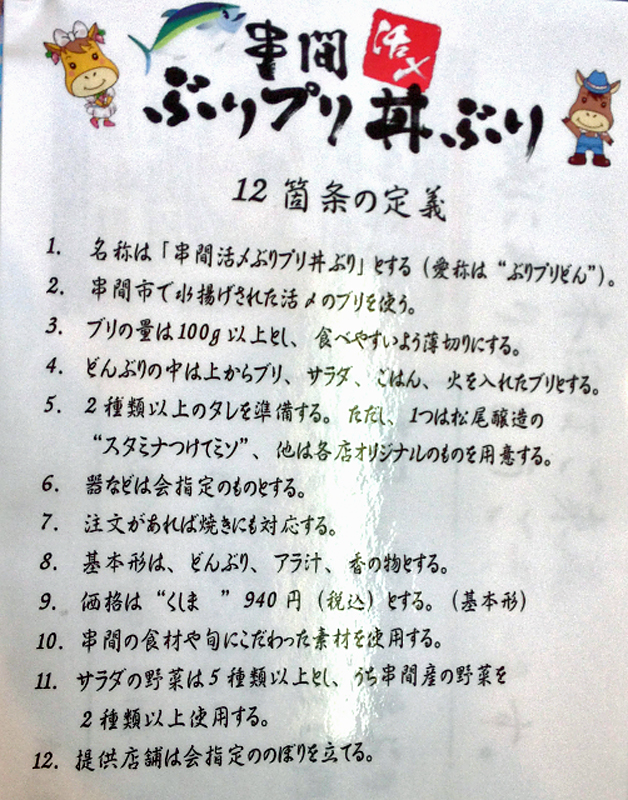 串間 活〆
ぶりプリ丼ぶり
12 箇条の定義
1. 名称は「串間活〆ぶりプリ丼ぶり」とする（愛称は“ぶりプリどん”）。
2. 串間市で水揚げされた活〆のブリを使う。
3. ブリの量は100g以上とし、食べやすいよう薄切りにする。
4. どんぶりの中は上からブリ、サラダ、ごはん、火を入れたブリとする。
5. 2種類以上のタレを準備する。ただし、1つは松尾醸造の
“スタミナつけてミソ”、他は各店オリジナルのものを用意する。
6. 器などは会指定のものとする。
7. 注文があれば焼きにも対応する。
8. 基本形は、どんぶり、アラ汁、香の物とする。
9. 価格は“くしま ”940円（税込）とする。（基本形）
10. 串間の食材や旬にこだわった素材を使用する。
11. サラダの野菜は5種類以上とし、うち串間産の野菜を
2種類以上使用する。
12. 提供店舗は会指定ののぼりを立てる。